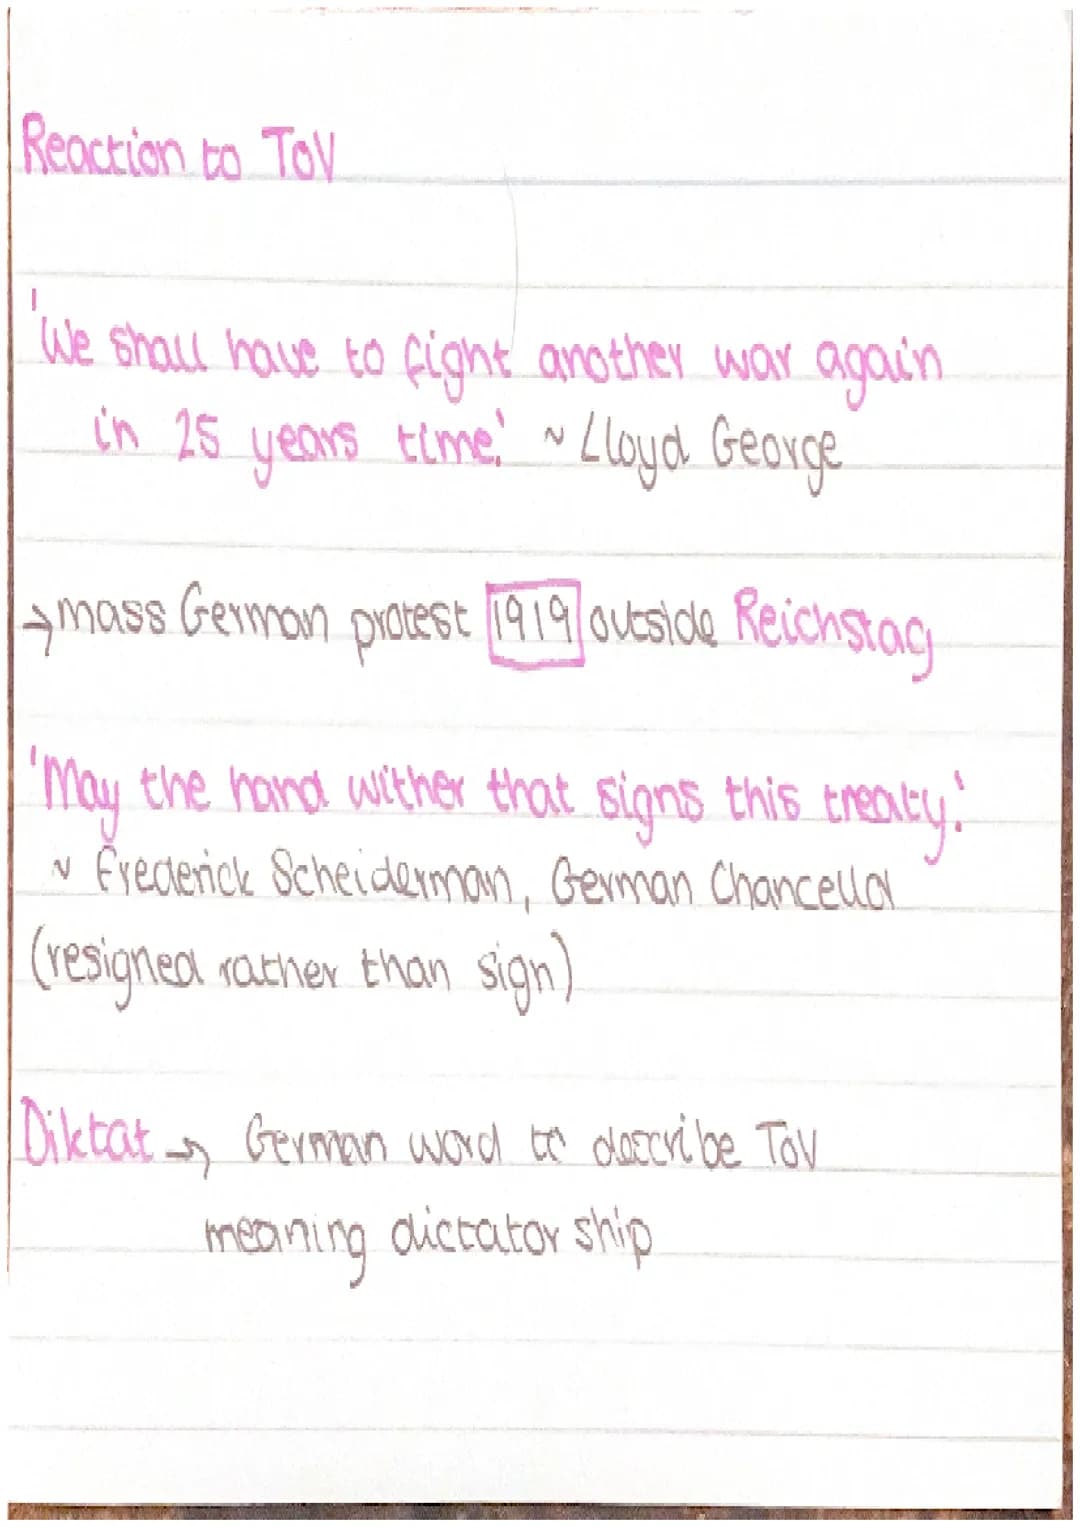 Reaction to ToV
'We shall have to fight another war again
in 25 years time.' ~ Lloyd George
→ mass German protest 1919 outside Reichstag
'May the hand wither that signs this treaty.'
~ Frederick Scheiderman, German Chancellor
(resigned rather than sign)
Diktat → German word to describe ToV
meaning dictator ship